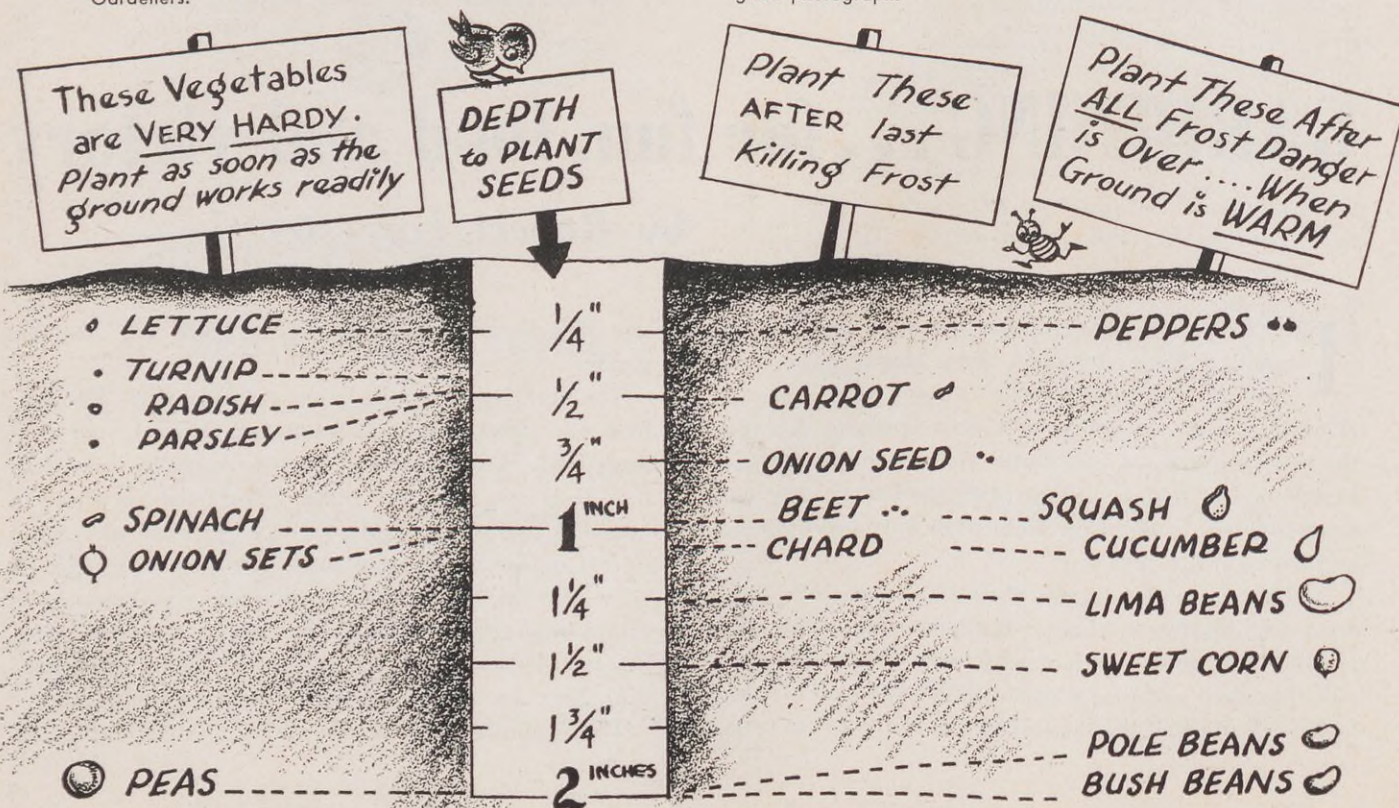 Gardeners.
These Vegetables
are VERY HARDY.
Plant as soon as the
ground works readily
DEPTH
to PLANT
SEEDS
Plant These
AFTER last
Killing Frost
Plant These After
ALL Frost Danger
is Over .... When
Ground is WARM
LETTUCE
TURNIP
RADISH
PARSLEY
SPINACH
ONION SETS
PEAS
1/4"
1/2"
3/4"
1 INCH
1 1/4"
1 1/2"
1 3/4"
2 INCHES
CARROT
ONION SEED
BEET
CHARD
PEPPERS
SQUASH
CUCUMBER
LIMA BEANS
SWEET CORN
POLE BEANS
BUSH BEANS